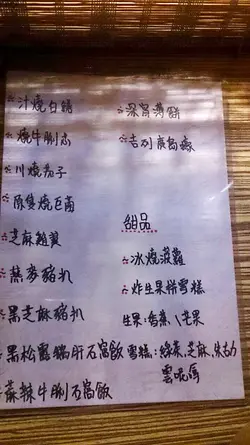 汁燒白鱔
燒牛脷芯
川燒茄子
燒巨菌
芝麻雞翼
燕麥豬扒
黑芝麻豬扒
黑松露鵝肝石窩飯
麻辣牛脷石窩飯
薄餅
吉列廣島蠔
甜品
冰燒菠蘿
炸生果拼雪糕
生果:香蕉、芒果
雪糕:綠茶,芝麻,朱古力
雲呢拿